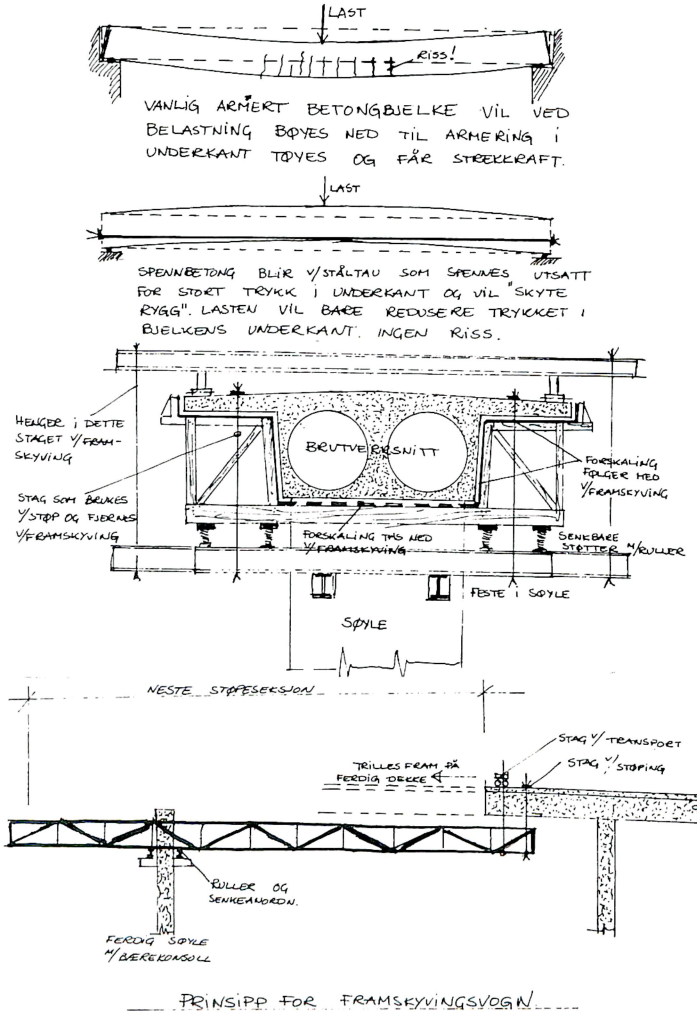 LAST
RISS!
VANLIG ARMERT BETONGBJELKE VIL VED
BELASTNING BØYES NED TIL ARMERING I
UNDERKANT TØYES OG FÅR STREKKRAFT.
LAST
SPENNBETONG BLIR V/STÅLTAU SOM SPENNES UTSATT
FOR STORT TRYKK I UNDERKANT OG VIL "SKYTE
RYGG". LASTEN VIL BARE REDUSERE TRYKKET I
BJELKENS UNDERKANT. INGEN RISS.
HENGER I DETTE
STAGET V/FRAM-
SKYVING
BRUTVERRSNITT
FORSKALING
FØLGER MED
V/FRAMSKYVING
STAG SOM BRUKES
V/STØP OG FJERNES
V/FRAMSKYVING
FORSKALING TAS NED
V/FRAMSKYVING
SENKBARE
STØTTER M/RULLER
FESTE I SØYLE
SØYLE
NESTE STØPESEKSJON
STAG V/TRANSPORT
STAG V/STØPING
TRILLES FRAM PÅ
FERDIG DEKKE
RULLER OG
SENKEANORDN.
FERDIG SØYLE
M/BÆREKONSOLL
PRINSIPP FOR FRAMSKYVINGSVOGN.